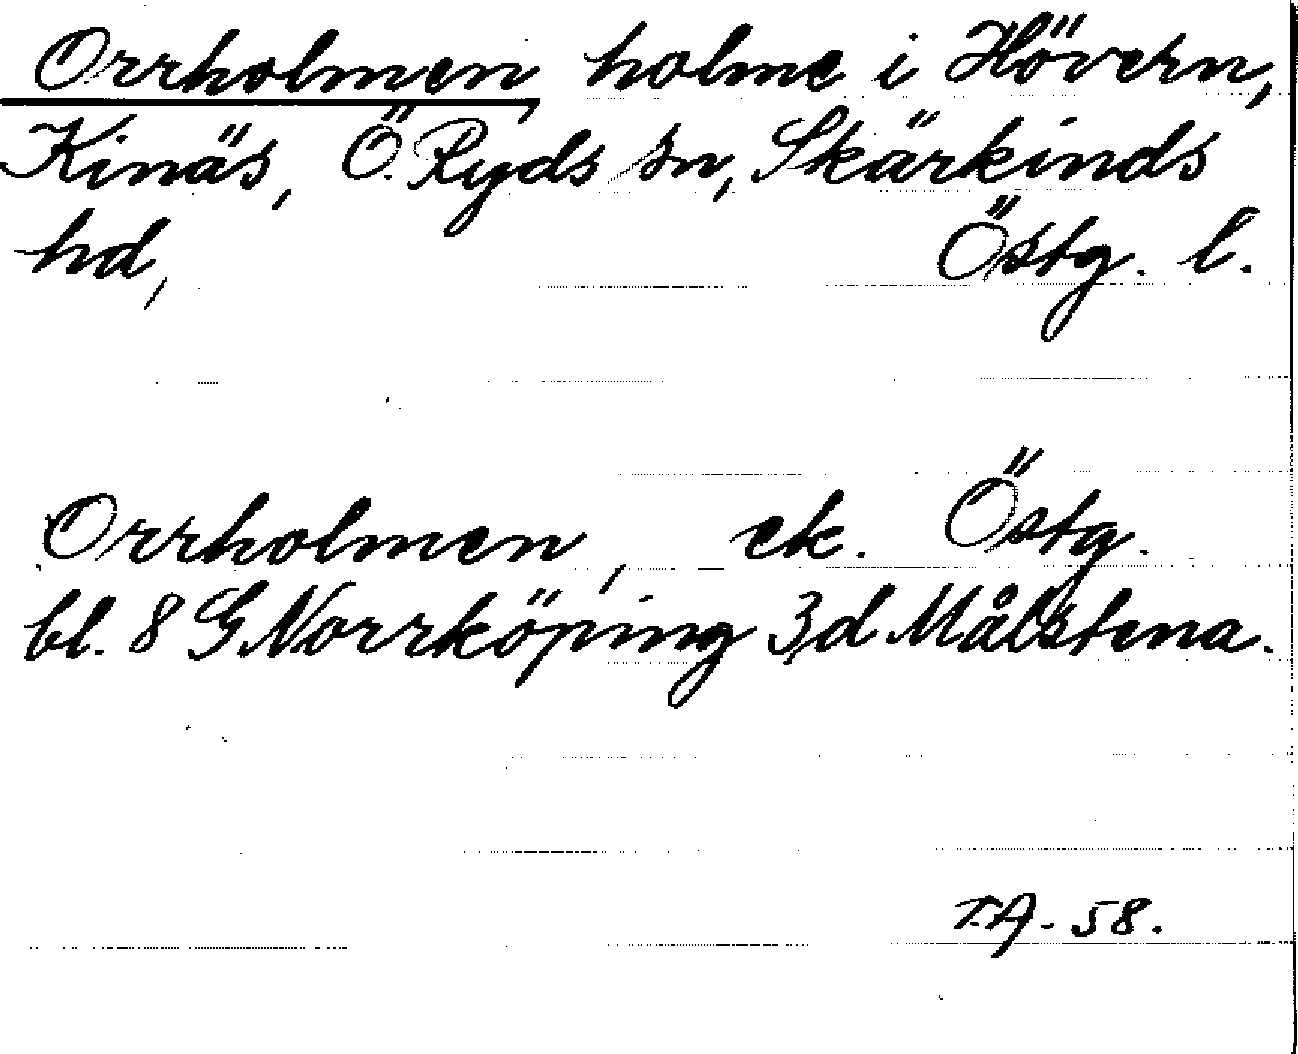 Orrholmen, holme i Hövern,
Kinäs, Ö. Ryds sn, Skärkinds
hd, Östg. l.
Orrholmen, ek. Östg.
bl. 8 G Norrköping 3d Målstena.
T.A. 58.